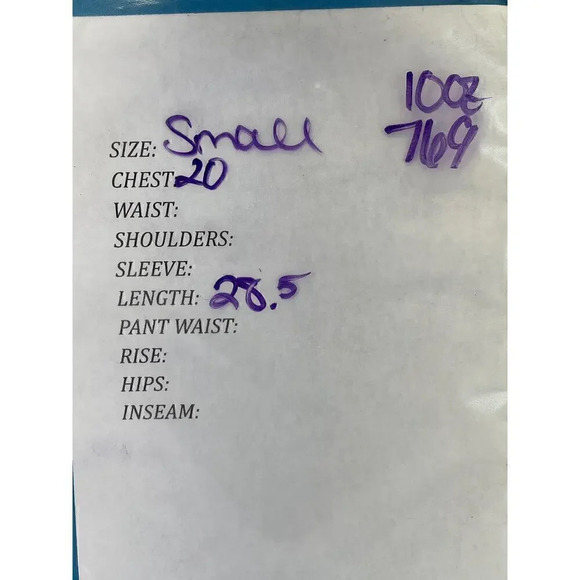 10oz
769
SIZE: Small
CHEST: 20
WAIST:
SHOULDERS:
SLEEVE:
LENGTH: 28.5
PANT WAIST:
RISE:
HIPS:
INSEAM: